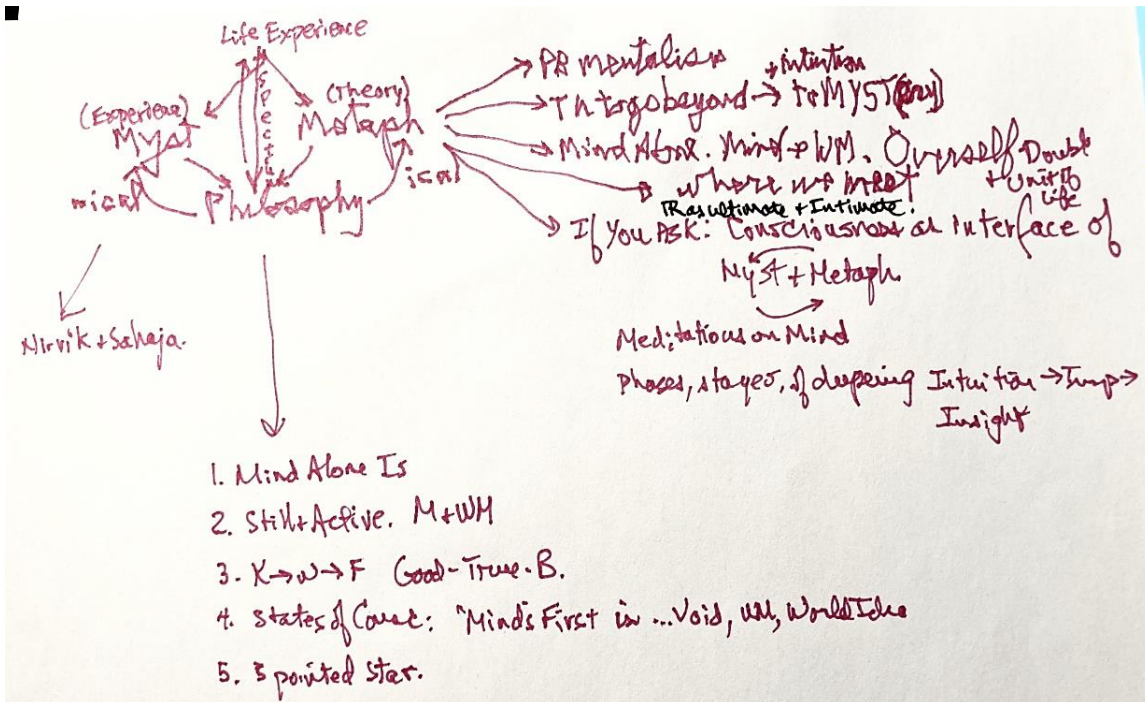 Life Experience
Aspects
(Experience)
Myst
mical
(Theory)
Metaph
ical
Philosophy
Nirvik + Sahaja.
PB mentalism
+ intuition
to go beyond → to MYST
Mind Alone. Mind → WM. Overself Double
where we meet
+ Unit
Life
as ultimate + Intimate.
If You Ask: Consciousness as interface of
Myst + Metaph.
Meditations on Mind
Phases, stages, of deepening Intuition → Imp →
Insight
1. Mind Alone Is
2. Still + Active. M + WM
3. K → W → F Good - True - B.
4. States of : "Mind's First in ... Void, WM, World Idea
5. 5 pointed star.